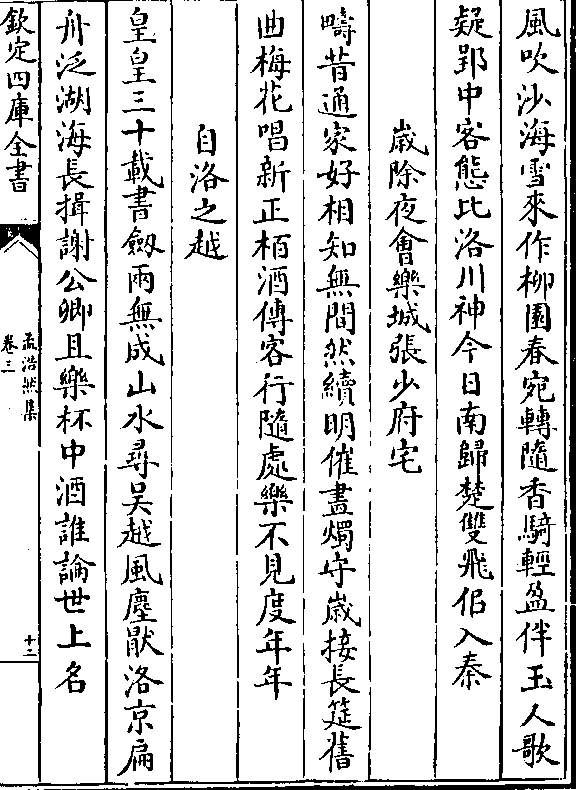 風吹沙海雪來作柳園春宛轉隨香騎輕盈伴玉人歌
疑郢中客態比洛川神今日南歸楚雙飛佀入秦
歳除夜會樂城張少府宅
疇昔通家好相知無間然續明催畫燭守嵗接長筵舊
曲梅花唱新正栢酒傳客行隨處樂不見度年年
自洛之越
皇皇三十載書劒兩無成山水尋吳越風塵厭洛京扁
舟泛湖海長揖謝公卿且樂杯中酒誰論世上名
欽定四庫全書
孟浩然集
卷三
十二